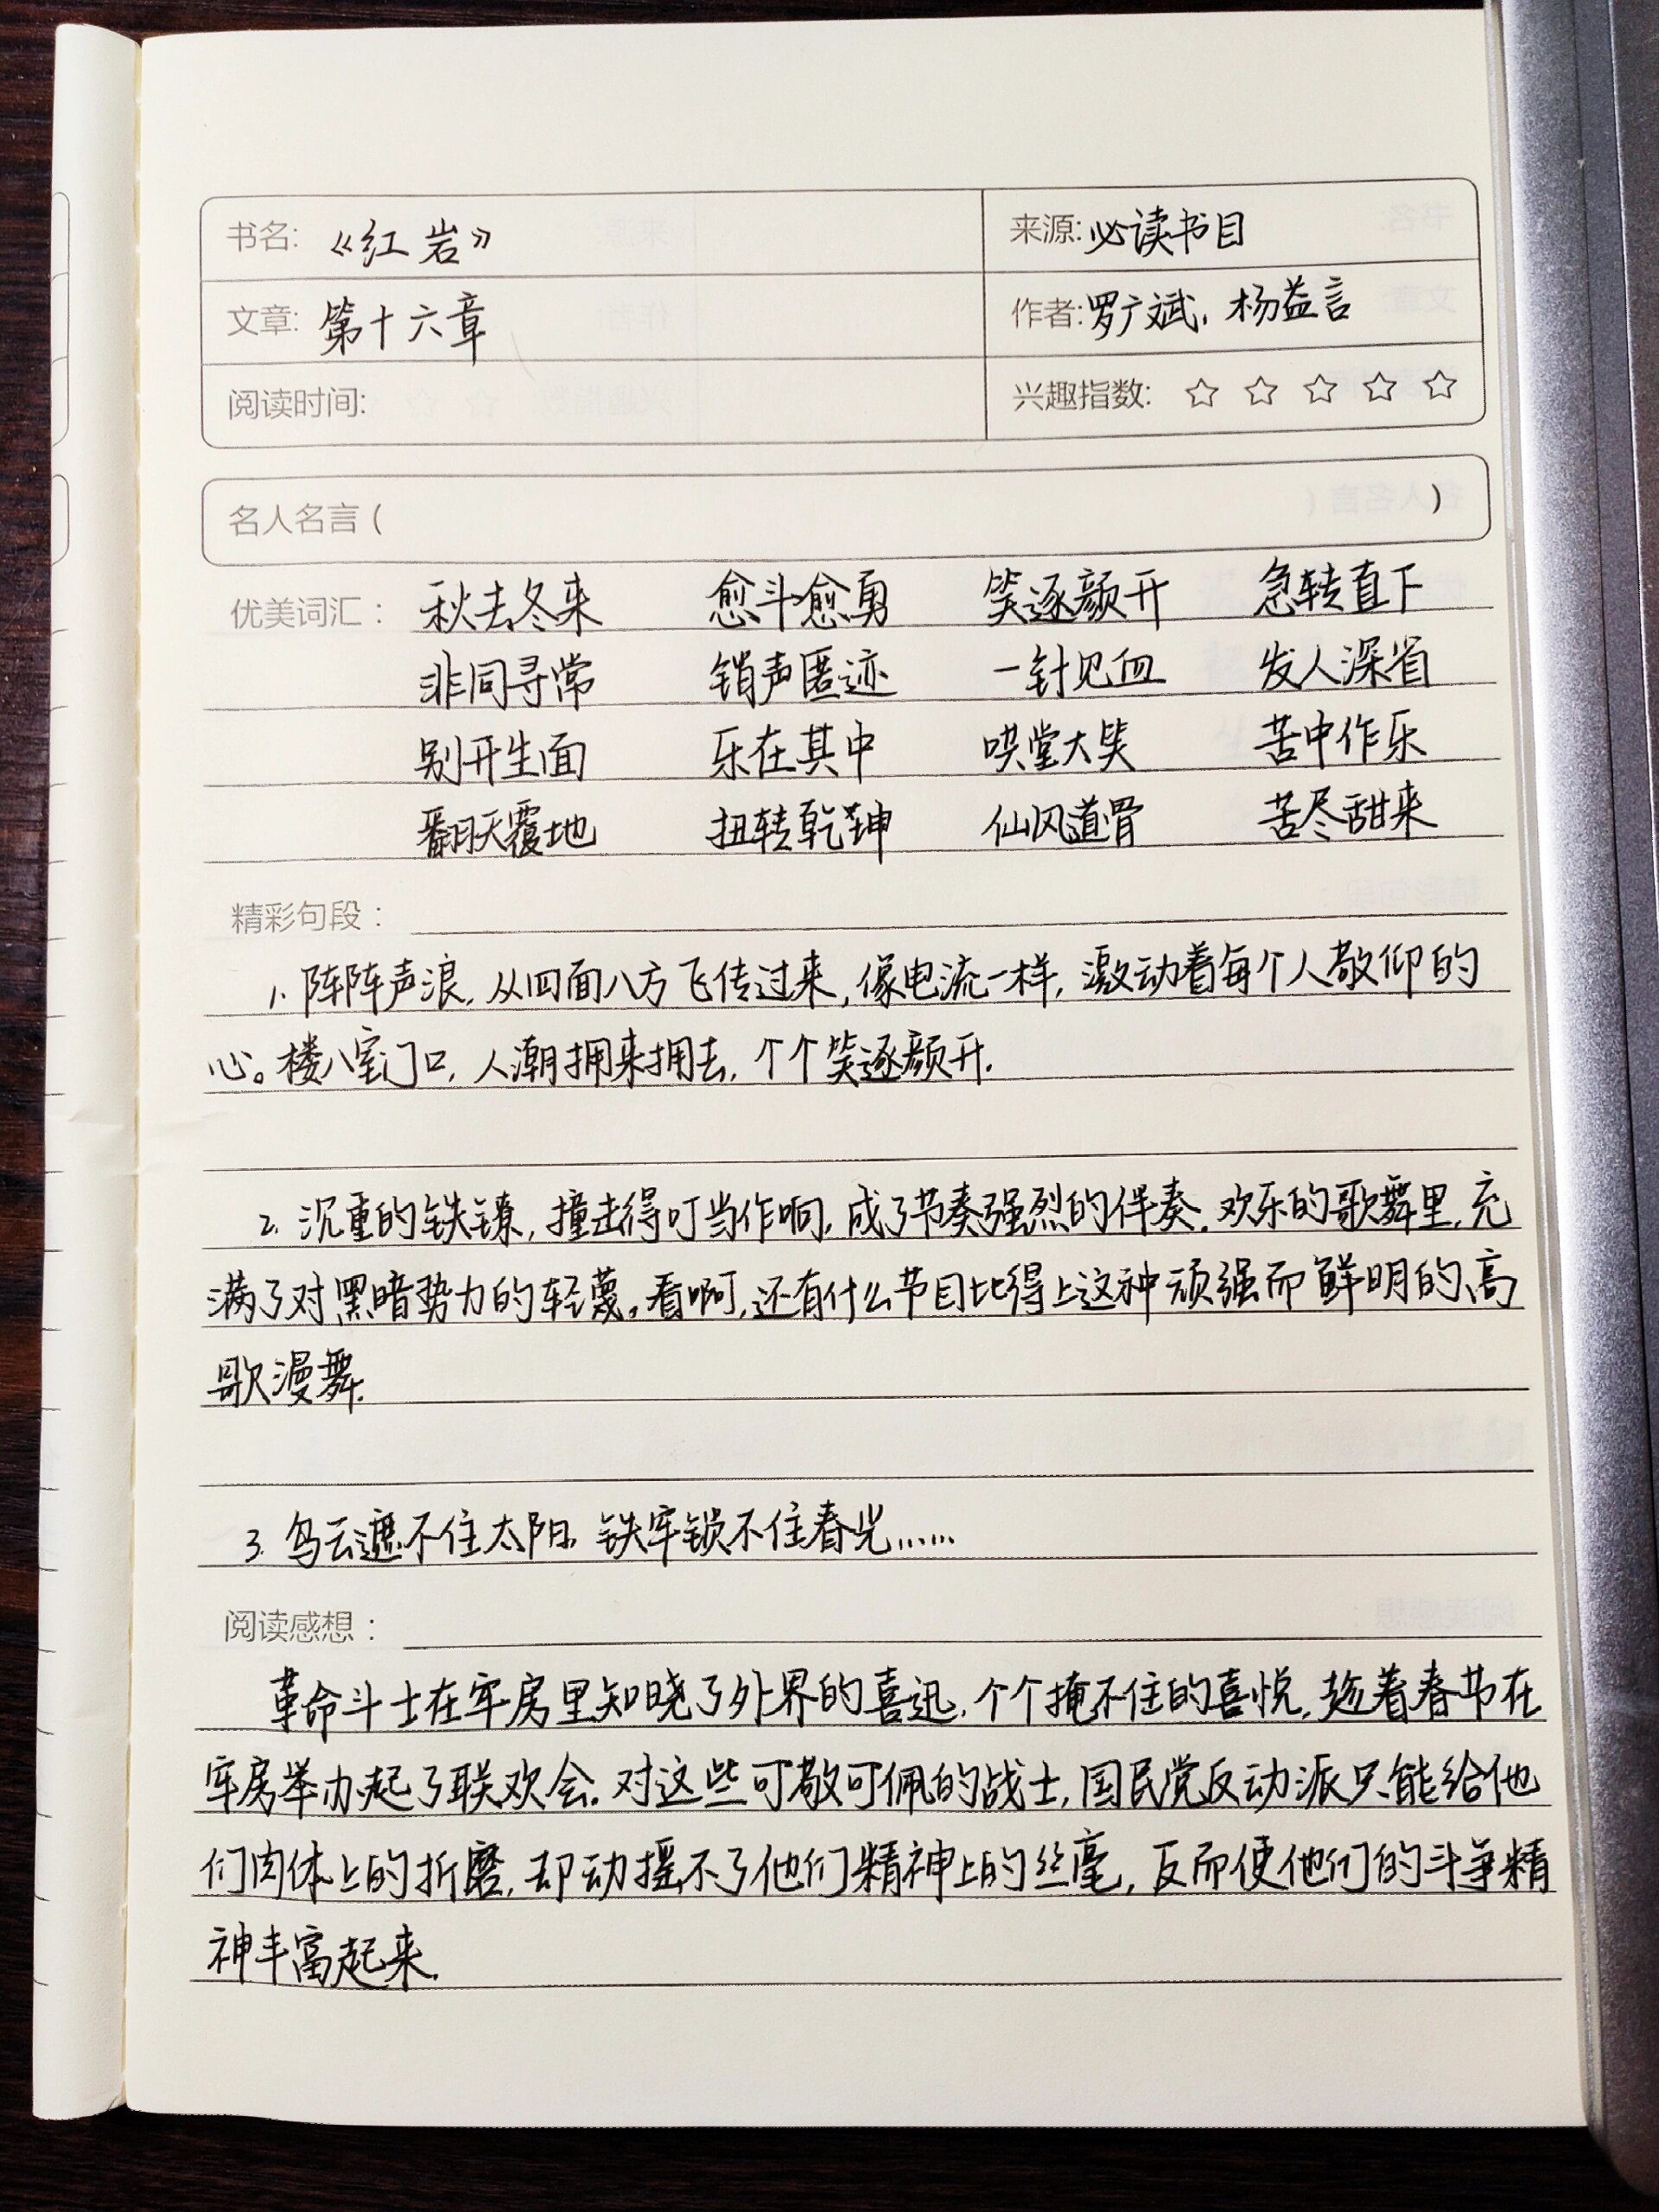 书名: 《红岩》
来源: 必读书目
文章: 第十六章
作者: 罗广斌, 杨益言
阅读时间:
兴趣指数: ☆ ☆ ☆ ☆ ☆
名人名言 ( )
优美词汇: 秋去冬来 愈斗愈勇 笑逐颜开 急转直下
非同寻常 销声匿迹 一针见血 发人深省
别开生面 乐在其中 哄堂大笑 苦中作乐
翻天覆地 扭转乾坤 仙风道骨 苦尽甜来
精彩句段:
1. 阵阵声浪, 从四面八方飞传过来, 像电流一样, 激动着每个人敬仰的
心。楼八室门口, 人潮拥来拥去, 个个笑逐颜开.
2. 沉重的铁镣, 撞击得叮当作响, 成了节奏强烈的伴奏. 欢乐的歌舞里, 充
满了对黑暗势力的轻蔑。看啊, 还有什么节目比得上这种顽强而鲜明的高
歌漫舞.
3. 乌云遮不住太阳, 铁牢锁不住春光……
阅读感想:
革命斗士在牢房里知晓了外界的喜迅, 个个掩不住的喜悦, 趁着春节在
牢房举办起了联欢会. 对这些可敬可佩的战士, 国民党反动派只能给他
们肉体上的折磨, 却动摇不了他们精神上的丝毫, 反而使他们的斗争精
神丰富起来.